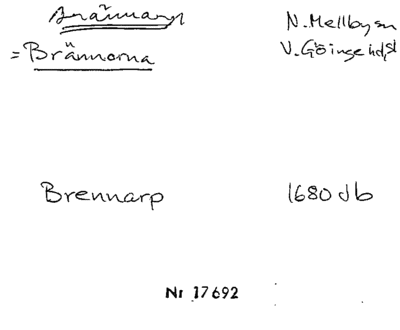 N. Mellby sn
= Brännorna V. Göinge hd, st
Brennarp 1680 Jb
Nr 17692